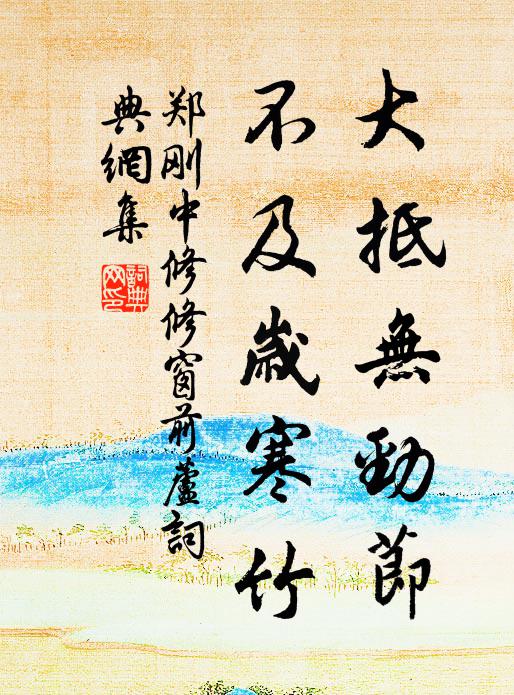 大抵無勁節
不及歲寒竹
郑刚中修修窗前蘆詞
典網集
詞典
网印